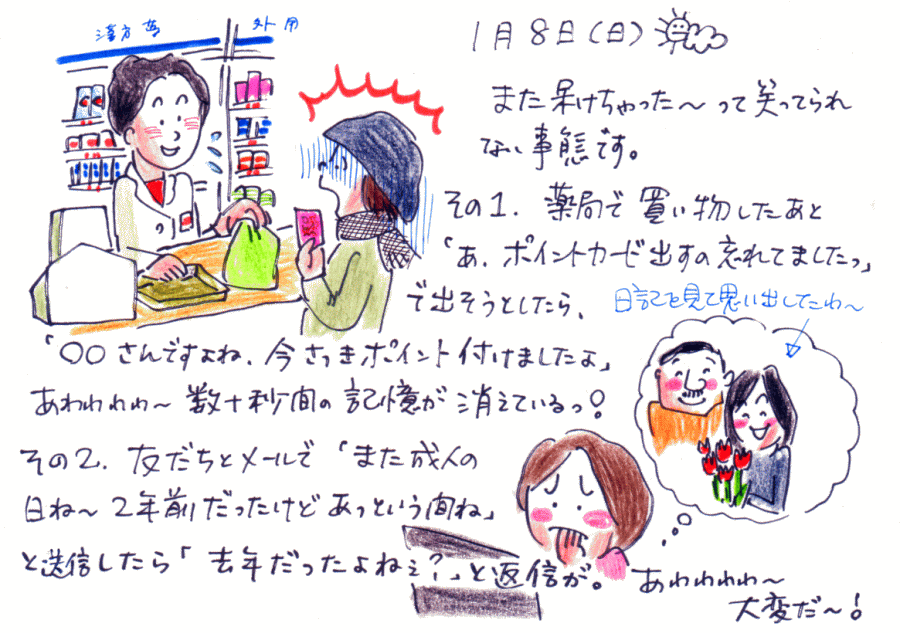 漢方薬
外用
1月8日(日)
また呆けちゃった〜って笑ってられ
ない事態です。
その1. 薬局で買い物したあと
「あ.ポイントカード出すの忘れてましたっ」
で出そうとしたら、
日記を見て思い出したわ〜
「〇〇さんですよね.今さっきポイント付けましたよ」
あわわわわ〜数十秒間の記憶が消えているっ!
その2.友だちとメールで「また成人の
日ね〜2年前だったけどあっという間ね」
と送信したら「去年だったよねぇ?」と返信が。
あわわわわ〜
大変だ〜!